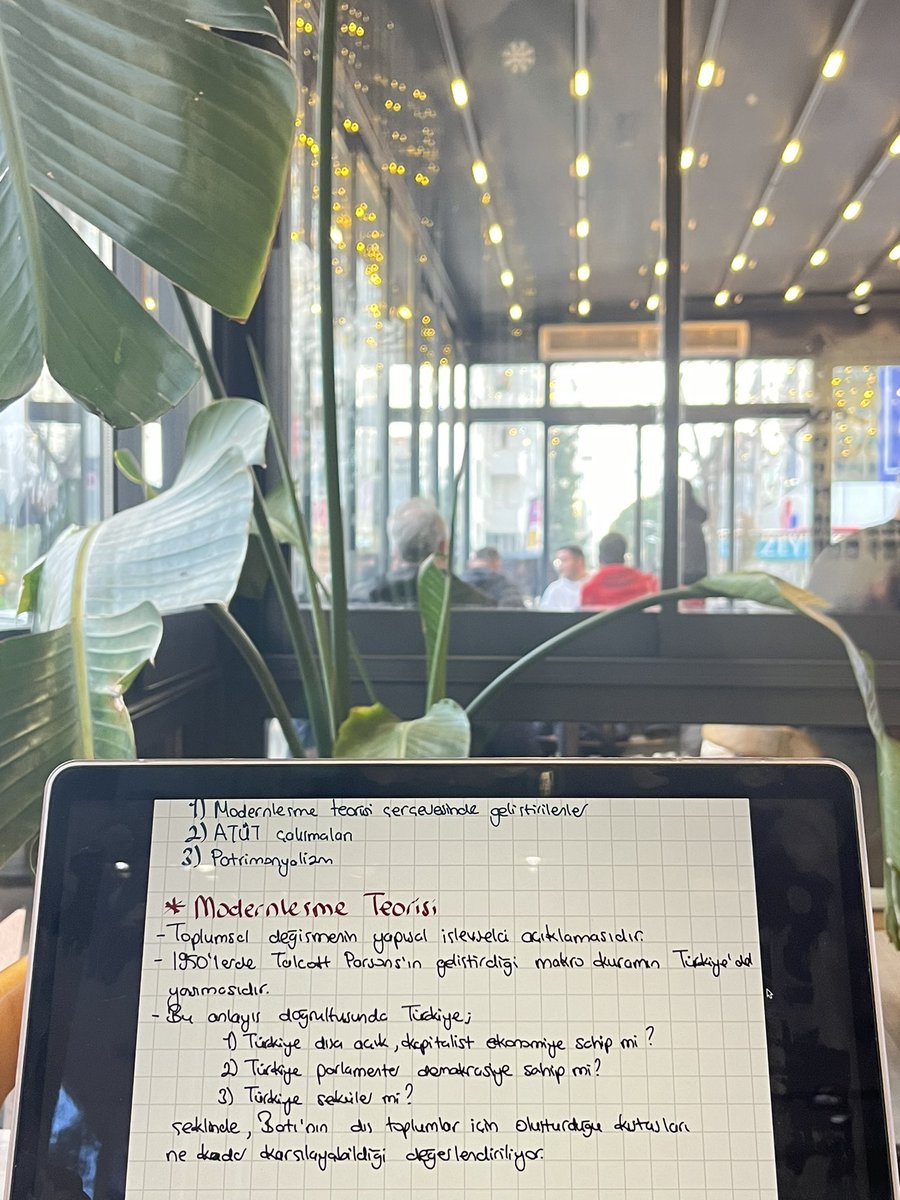 1) Modernleşme teorisi çerçevesinde geliştirilenler
2) ATÜT çalışmaları
3) Patrimonyalizm
* Modernleşme Teorisi
- Toplumsal değişmenin yapısal işlevselci açıklamasıdır.
- 1950'lerde Talcott Parsons'ın geliştirdiği makro kuramın Türkiye'de
yansımasıdır.
- Bu anlayış doğrultusunda Türkiye;
1) Türkiye dışa açık, kapitalist ekonomiye sahip mi?
2) Türkiye parlamenter demokrasiye sahip mi?
3) Türkiye seküler mi?
şeklinde, Batı'nın dış toplumlar için oluşturduğu kutusları
ne kadar karşılayabildiği değerlendiriliyor.
ZEY